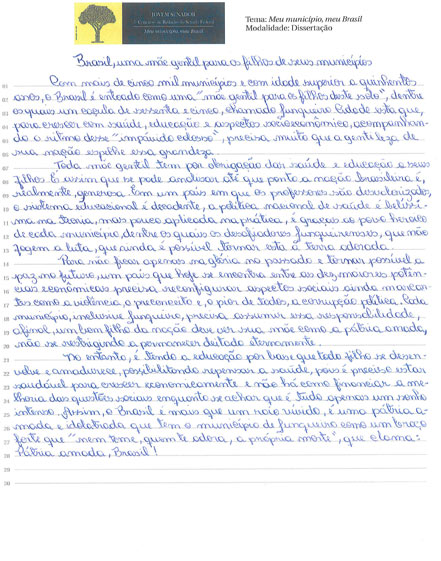 JOVEM SENADOR
Meu município, meu Brasil
Tema: Meu município, meu Brasil
Modalidade: Dissertação
Brasil, uma mãe gentil para os filhos de seus municípios
01 Com mais de cinco mil municípios e com idade superior a quinhentos
02 anos, o Brasil é entoado como uma "mãe gentil para os filhos deste solo", dentre
03 os quais um caçula de sessenta e cinco, chamado Junqueiro. Cidade esta que,
04 para crescer com saúde, educação e aspectos socioeconômico, acompanhan-
05 do o ritmo desse "impávido colosso", precisa muito que a gentileza de
06 sua nação espelhe essa grandeza.
07 Toda mãe gentil tem por obrigação dar saúde e educação a seus
08 filhos. É assim que se pode analisar até que ponto a nação brasileira é,
09 realmente, generosa. Em um país em que os professores são desvalorizados,
10 o sistema educacional é decadente, a política nacional de saúde é belíssi-
11 ma na teoria, mas pouco aplicada na prática, é graças ao povo heroico
12 de cada município, dentre os quais os desafiadores junqueirenses, que não
13 fogem a luta, que ainda é possível tornar esta a terra adorada.
14 Para não ficar apenas na glória no passado e tornar possível a
15 paz no futuro, um país que hoje se encontra entre as dez maiores potên-
16 cias econômicas precisa reconfigurar aspectos sociais ainda marcan-
17 tes como a violência, o preconceito e, o pior de todos, a corrupção política. Cada
18 município, inclusive Junqueiro, precisa assumir essa responsabilidade,
19 afinal, um bom filho da nação deve ver sua mãe como a pátria amada,
20 não se restringindo a permanecer deitado eternamente.
21 No entanto, é tendo a educação por base que todo filho se desen-
22 volve e amadurece, possibilitando repensar a saúde, pois é preciso estar
23 saudável para crescer economicamente e não há como financiar a me-
24 lhoria das questões sociais enquanto se achar que é tudo apenas um sonho
25 intenso. Assim, o Brasil é mais que um raio vívido, é uma pátria a-
26 mada e idolatrada que tem o município de Junqueiro como um braço
27 forte que "nem teme, quem te adora, a própria morte", que clama:
28 Pátria amada, Brasil!
29
30